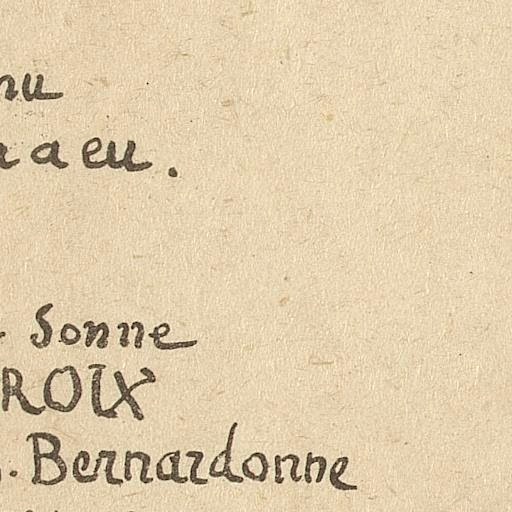 nu
a a eu.
Sonne
ROIX
. Bernardonne